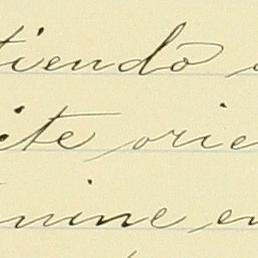 tiendo
ite orie
mine en